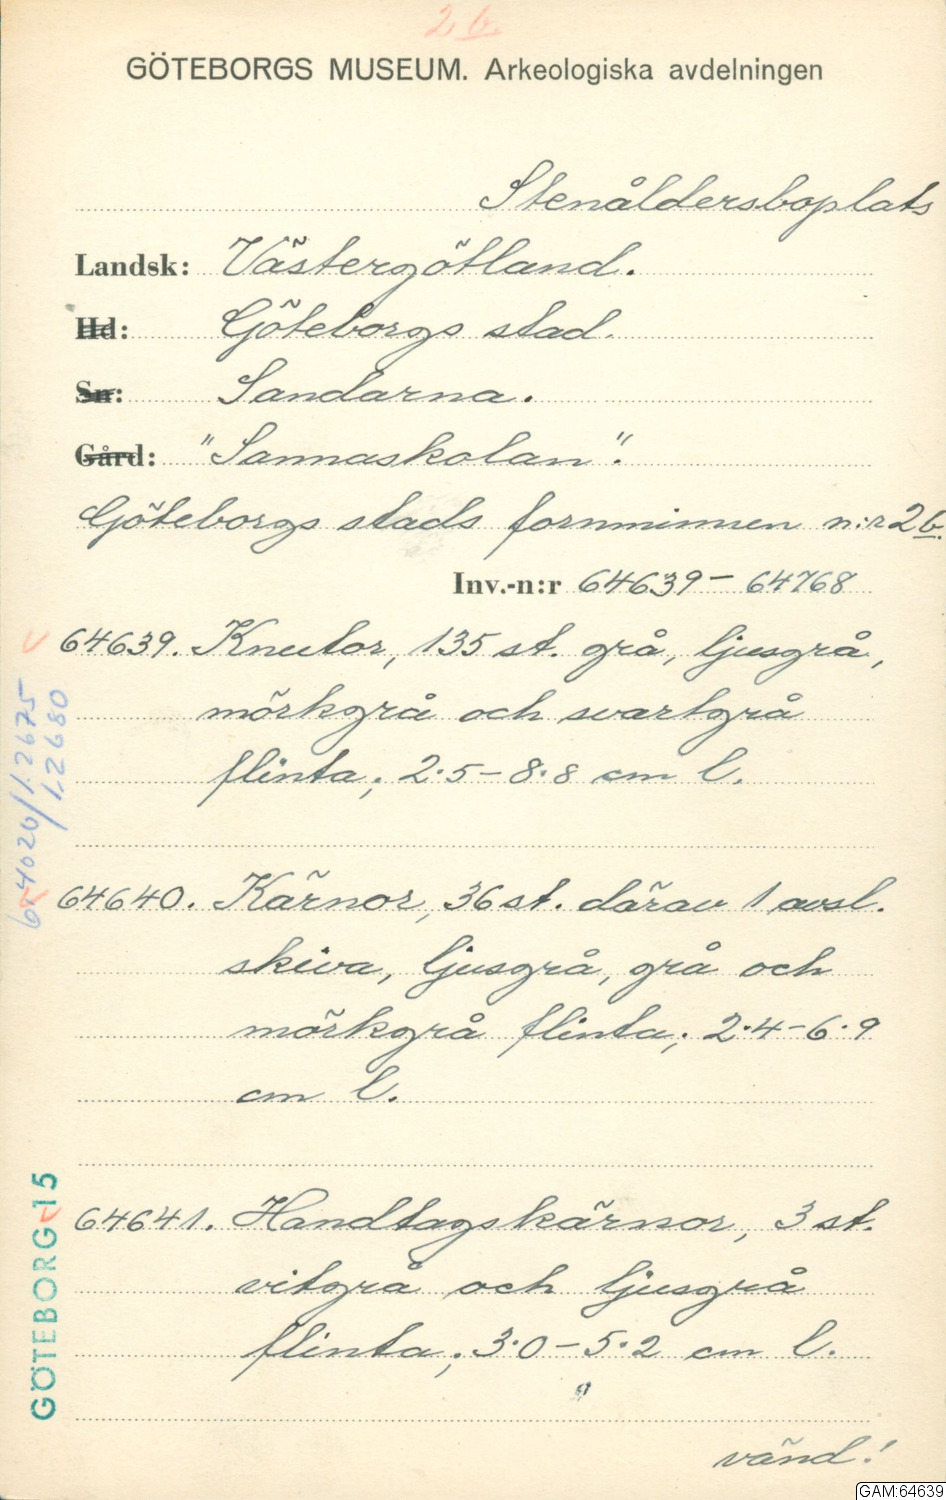 2b.
GÖTEBORGS MUSEUM. Arkeologiska avdelningen
Stenåldersboplats
Landsk: Västergötland.
Hd: Göteborgs stad.
Sn: Sandarna.
Gård: "Sannaskolan".
Göteborgs stads fornminnen n:r 2b.
Inv.-n:r 64639 – 64768
64639. Knutor, 135 st. grå, ljusgrå,
mörkgrå och svartgrå
flinta; 2.5 – 8.8 cm l.
64640. Kärnor, 36 st. därav 1 avsl.
skiva, ljusgrå, grå och
mörkgrå flinta; 2.4 – 6.9
cm l.
64641. Handtagskärnor, 3 st.
vitgrå och ljusgrå
flinta; 3.0 – 5.2 cm l.
vänd!
1:2675
1:2680
GÖTEBORG 15
GAM:64639